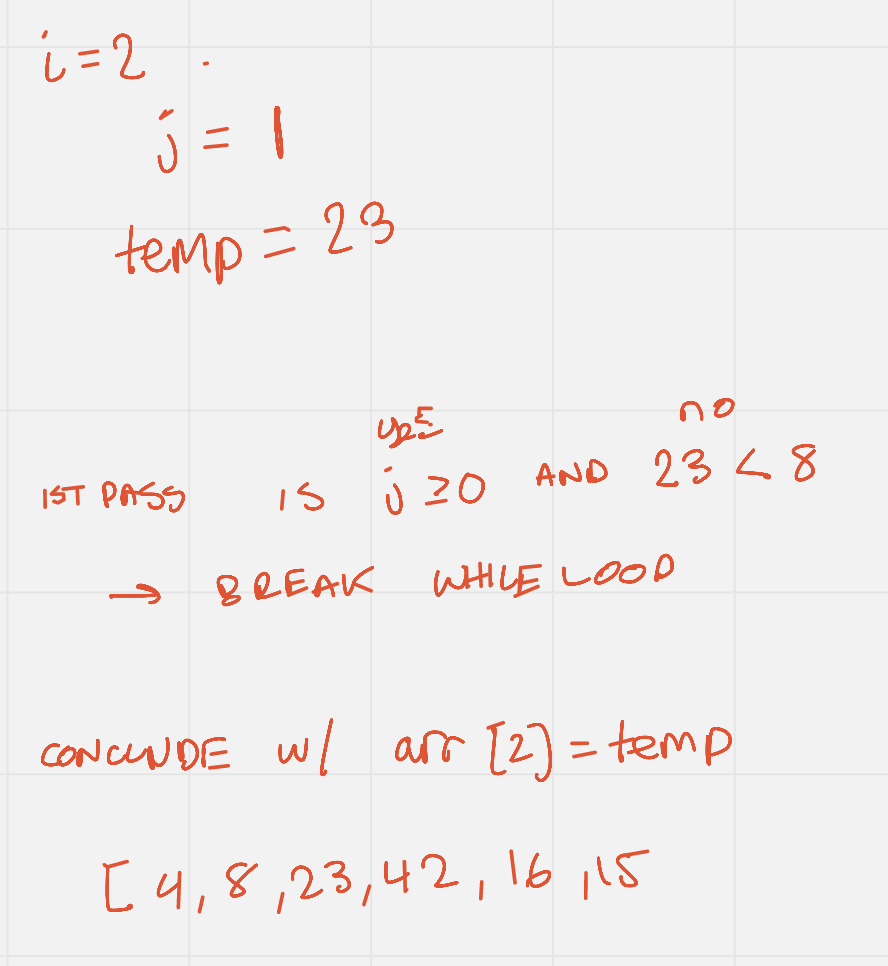 i = 2 .
j = 1
temp = 23
no
1ST PASS IS j ≥ 0 AND 23 < 8
→ BREAK WHILE LOOP
CONCLUDE w/ arr [2] = temp
[ 4, 8, 23, 42, 16, 15